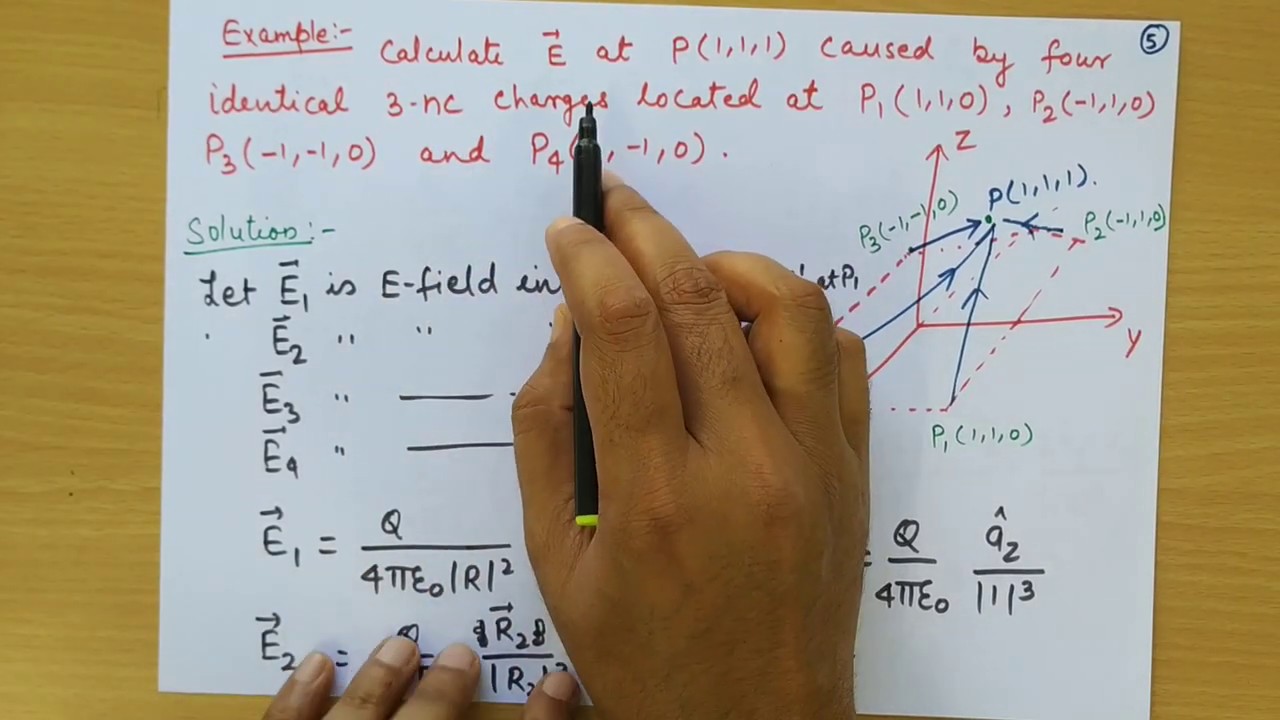 Example:- Calculate E⃗ at P(1,1,1) caused by four
identical 3-nc charges located at P₁(1,1,0), P₂(-1,1,0)
P₃(-1,-1,0) and P₄( , -1,0).
5
Solution:-
Let E⃗₁ is E-field in at P₁
E⃗₂ " "
E⃗₃ "
E⃗₄ "
E⃗₁ = Q / 4πε₀|R|²
= Q / 4πε₀ â₂ / |1|³
E⃗₂ = R⃗₂ / |R₂|
Z
P(1,1,1).
P₃(-1,-1,0)
P₂(-1,1,0)
Y
P₁(1,1,0)